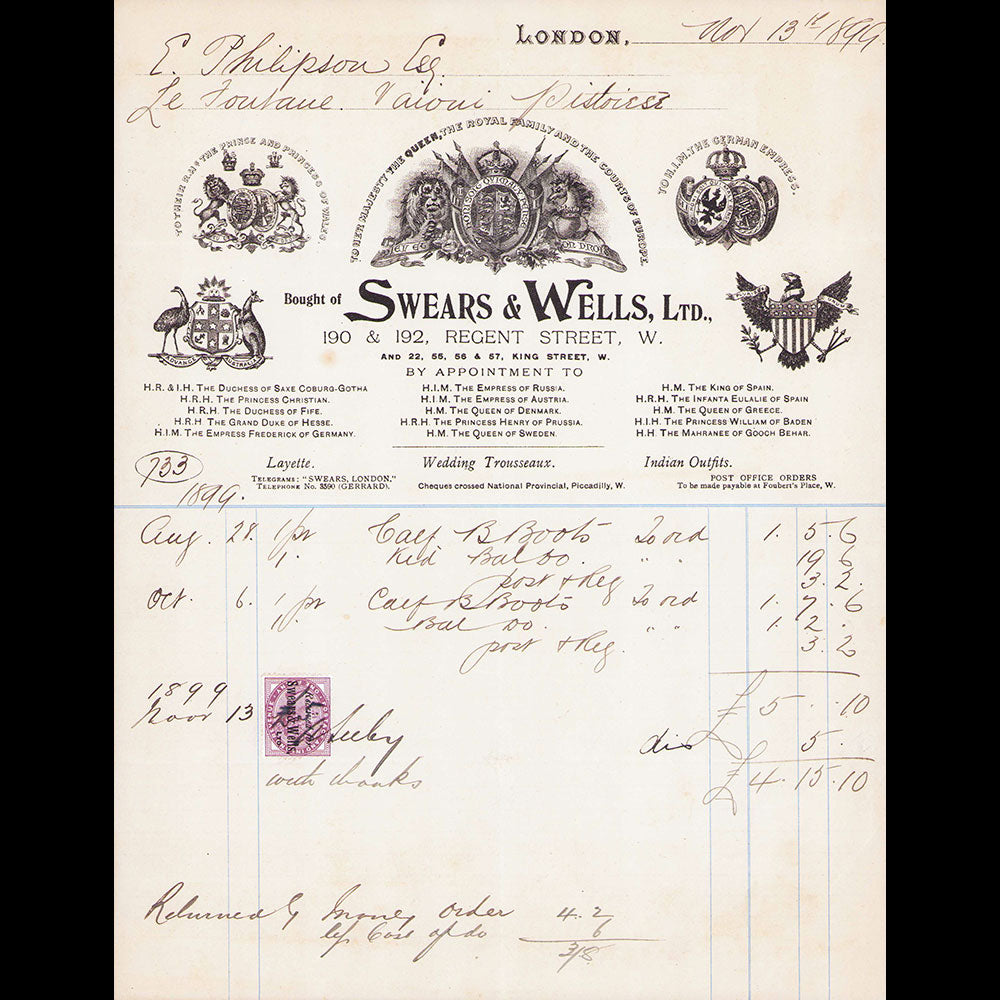 LONDON, Nov 13th 1899.
E. Philipson Esq
Le Fontane. Vaioni Pistoiese
TO THEIR R.H.S THE PRINCE AND PRINCESS OF WALES.
TO HER MAJESTY THE QUEEN, THE ROYAL FAMILY AND THE COURTS OF EUROPE.
TO H.I.M. THE GERMAN EMPRESS.
ADVANCE AUSTRALIA
Bought of SWEARS & WELLS, LTD.,
190 & 192, REGENT STREET, W.
AND 22, 55, 56 & 57, KING STREET, W.
BY APPOINTMENT TO
H.R. & I.H. THE DUCHESS OF SAXE COBURG-GOTHA
H.R.H. THE PRINCESS CHRISTIAN.
H.R.H. THE DUCHESS OF FIFE.
H.R.H THE GRAND DUKE OF HESSE.
H.I.M. THE EMPRESS FREDERICK OF GERMANY.
H.I.M. THE EMPRESS OF RUSSIA.
H.I.M. THE EMPRESS OF AUSTRIA.
H.M. THE QUEEN OF DENMARK.
H.R.H. THE PRINCESS HENRY OF PRUSSIA.
H.M. THE QUEEN OF SWEDEN.
H.M. THE KING OF SPAIN.
H.R.H. THE INFANTA EULALIE OF SPAIN
H.M. THE QUEEN OF GREECE.
H.I.H. THE PRINCESS WILLIAM OF BADEN
H.H. THE MAHRANEE OF GOOCH BEHAR.
733
Layette. Wedding Trousseaux. Indian Outfits.
TELEGRAMS: "SWEARS, LONDON."
TELEPHONE NO. 3590 (GERRARD).
Cheques crossed National Provincial, Piccadilly, W.
POST OFFICE ORDERS
To be made payable at Foubert's Place, W.
1899.
Aug. 28. 1 pr Calf B Boots To ord 1. 5. 6
1. Kid Bal Do. " " 19 6
post & Reg 3. 2.
Oct. 6. 1 pr Calf B Boots To ord 1. 7. 6
1. Bal Do. " " 1. 2.
post & Reg. 3. 2
£ 5 . 10
1899
Novr 13
Swears & Wells
dis 5.
with thanks
£ 4. 15. 10
Returned by Money Order 4. 2
less Cost of do 6
3/8